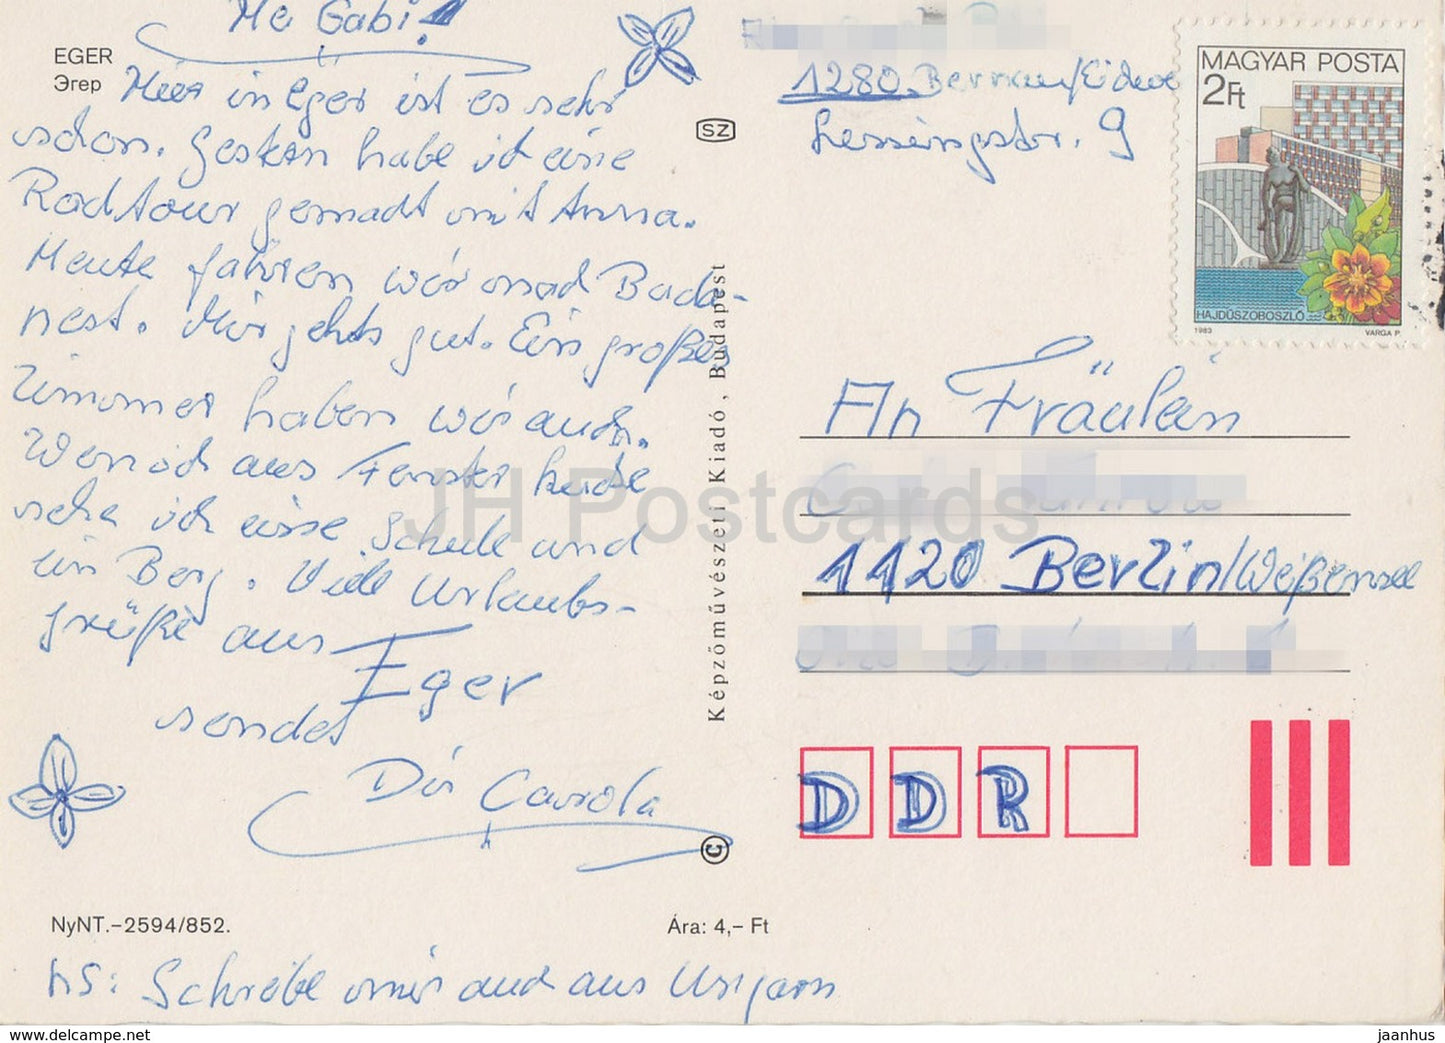 He Gabi!
EGER
Эгер
Hier in Eger ist es sehr
schön. Gestern habe ich eine
Radtour gemacht mit Anna.
Heute fahren wir nach Buda-
pest. Mir gehts gut. Ein großes
Zimmer haben wir auch.
Wenn ich aus Fenster kucke
sehe ich eine Schule und
ein Berg. Viele Urlaubs-
grüße aus
Eger
sendet
Dir Carola
NyNT.–2594/852.
Ára: 4,– Ft
NS: Schreibe mir auch aus Ungarn
SZ
Képzőművészeti Kiadó, Budapest
©
1280 Bernau/Eiche
Lessingstr. 9
MAGYAR POSTA
2Ft
HAJDÚSZOBOSZLÓ
1983 VARGA P.
An Fräulein
1120 Berlin/Weißensee
DDR
JH Postcards
https://www.delcampe.net
jaanhus